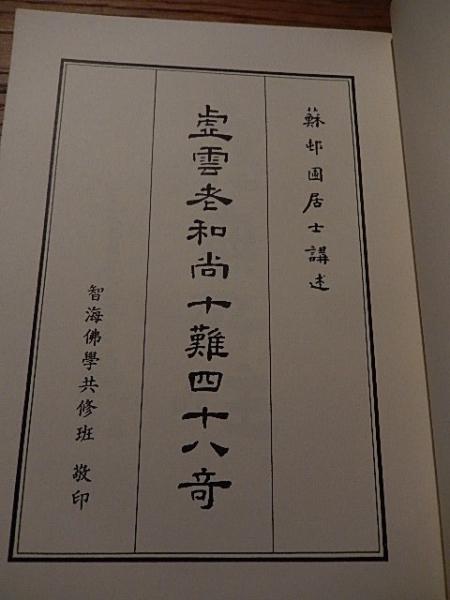 蘇邨圃居士講述
虛雲老和尚十難四十八奇
智海佛學共修班 敬印